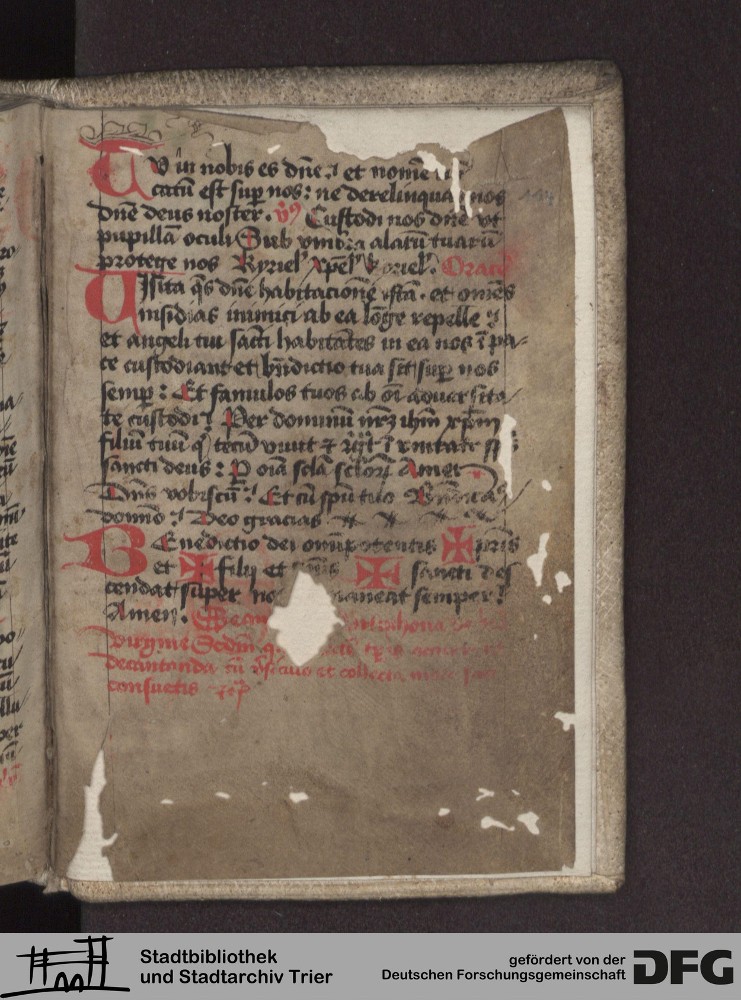 TV in nobis es dñe : et nomē
catū est sup nos : ne derelinquas nos
dñe deus noster . Custodi nos dñe vt
pupillā oculi Sub vmbra alarū tuarū
protege nos Kyriel' xpel' kyriel' . Oratio
VIsita q̄s dñe habitacionē istā . et omēs
insidias inimici ab ea lōge repelle :
et angeli tui sancti habitātes in ea nos ī pa-
ce custodiant et bn̄dictio tua sit sup nos
semp : Et famulos tuos ab
te custodi : Per dominū nr̄m ihm̄ xpm̄
filiū tuū q' tecū viuit ⁊ ī vnitate
sancti deus : P oīa scl̄a scl̄oꝝ Amen
Dn̄s vobiscū : Et cū spū tuo
domino : Deo gracias
BEnedictio dei omnipotentis ✠ pr̄is
et ✠ filij et ✠ sancti des
cendat super nos maneat semper :
Amen .
virgine
decantanda cū et collecta
consuetis
Stadtbibliothek
und Stadtarchiv Trier
gefördert von der
Deutschen Forschungsgemeinschaft
DFG